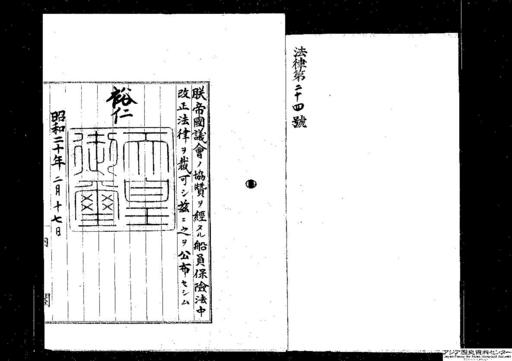 法律第二十四號
朕帝國議會ノ協賛ヲ經タル船員保險法中
改正法律ヲ裁可シ茲ニ之ヲ公布セシム
裕仁
天皇
御璽
昭和二十年二月十七日
内閣
アジア歴史資料センター